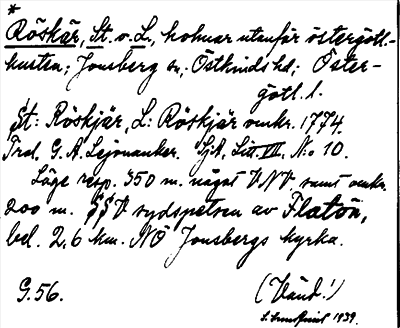 *
Röskär, St. o. L., holmar utanför östergötl.-
kusten; Jonsberg sn; Östkinds hd; Öster-
götl. l.
St: Röskjär, L: Röskjär omkr. 1774.
Trol. G. A. Lejonanker. Sjk. Litt. VII, N:o 10.
Läge resp. 350 m. något VNV samt omkr.
200 m. SSV sydspetsen av Flatön,
bel. 2,6 km. NO Jonsbergs kyrka.
G. 56.
(Vänd!)
1939.